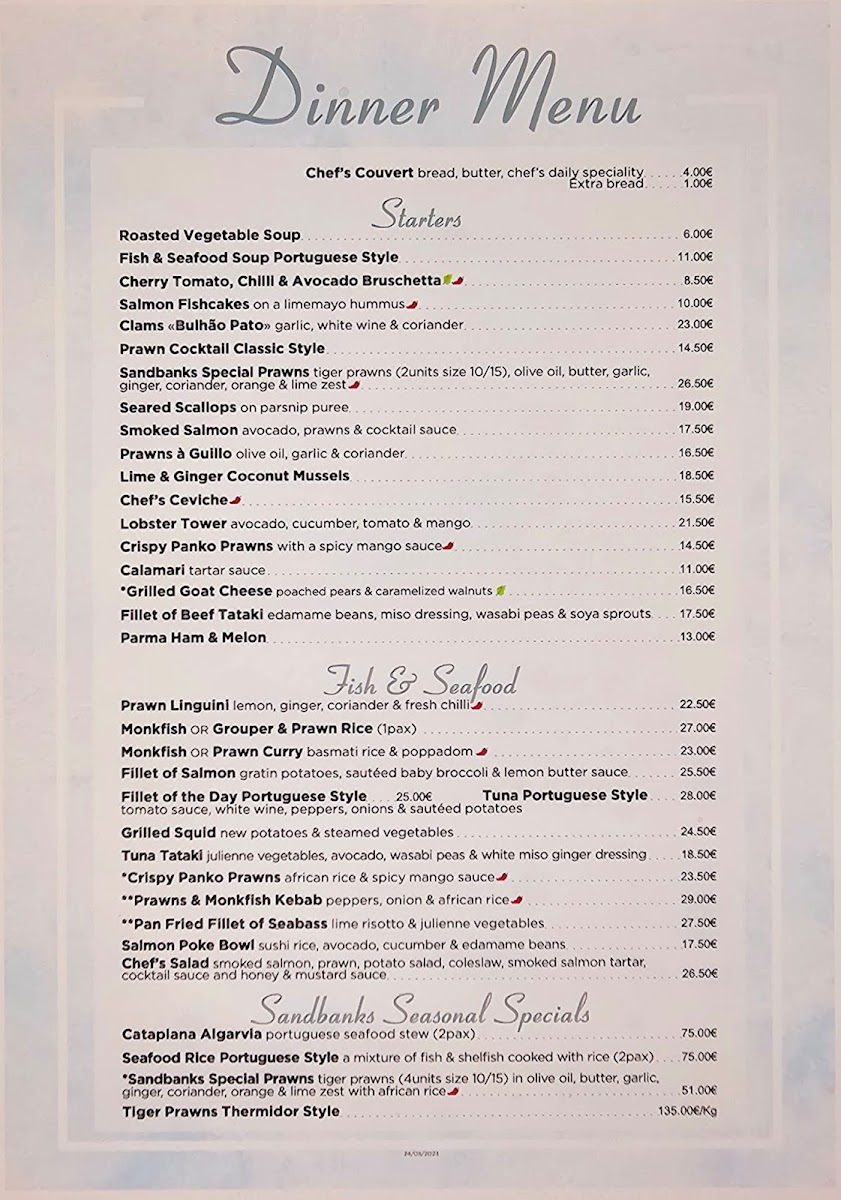 Dinner Menu
Chef's Couvert bread, butter, chef's daily speciality 4.00€
Extra bread 1.00€
Starters
Roasted Vegetable Soup 6.00€
Fish & Seafood Soup Portuguese Style 11.00€
Cherry Tomato, Chilli & Avocado Bruschetta 8.50€
Salmon Fishcakes on a limemayo hummus 10.00€
Clams «Bulhão Pato» garlic, white wine & coriander 23.00€
Prawn Cocktail Classic Style 14.50€
Sandbanks Special Prawns tiger prawns (2units size 10/15), olive oil, butter, garlic,
ginger, coriander, orange & lime zest 26.50€
Seared Scallops on parsnip puree 19.00€
Smoked Salmon avocado, prawns & cocktail sauce 17.50€
Prawns à Guillo olive oil, garlic & coriander 16.50€
Lime & Ginger Coconut Mussels 18.50€
Chef's Ceviche 15.50€
Lobster Tower avocado, cucumber, tomato & mango 21.50€
Crispy Panko Prawns with a spicy mango sauce 14.50€
Calamari tartar sauce 11.00€
*Grilled Goat Cheese poached pears & caramelized walnuts 16.50€
Fillet of Beef Tataki edamame beans, miso dressing, wasabi peas & soya sprouts 17.50€
Parma Ham & Melon 13.00€
Fish & Seafood
Prawn Linguini lemon, ginger, coriander & fresh chilli 22.50€
Monkfish OR Grouper & Prawn Rice (1pax) 27.00€
Monkfish OR Prawn Curry basmati rice & poppadom 23.00€
Fillet of Salmon gratin potatoes, sautéed baby broccoli & lemon butter sauce 25.50€
Fillet of the Day Portuguese Style 25.00€ Tuna Portuguese Style 28.00€
tomato sauce, white wine, peppers, onions & sautéed potatoes
Grilled Squid new potatoes & steamed vegetables 24.50€
Tuna Tataki julienne vegetables, avocado, wasabi peas & white miso ginger dressing 18.50€
*Crispy Panko Prawns african rice & spicy mango sauce 23.50€
**Prawns & Monkfish Kebab peppers, onion & african rice 29.00€
**Pan Fried Fillet of Seabass lime risotto & julienne vegetables 27.50€
Salmon Poke Bowl sushi rice, avocado, cucumber & edamame beans 17.50€
Chef's Salad smoked salmon, prawn, potato salad, coleslaw, smoked salmon tartar,
cocktail sauce and honey & mustard sauce 26.50€
Sandbanks Seasonal Specials
Cataplana Algarvia portuguese seafood stew (2pax) 75.00€
Seafood Rice Portuguese Style a mixture of fish & shelfish cooked with rice (2pax) 75.00€
*Sandbanks Special Prawns tiger prawns (4units size 10/15) in olive oil, butter, garlic,
ginger, coriander, orange & lime zest with african rice 51.00€
Tiger Prawns Thermidor Style 135.00€/Kg